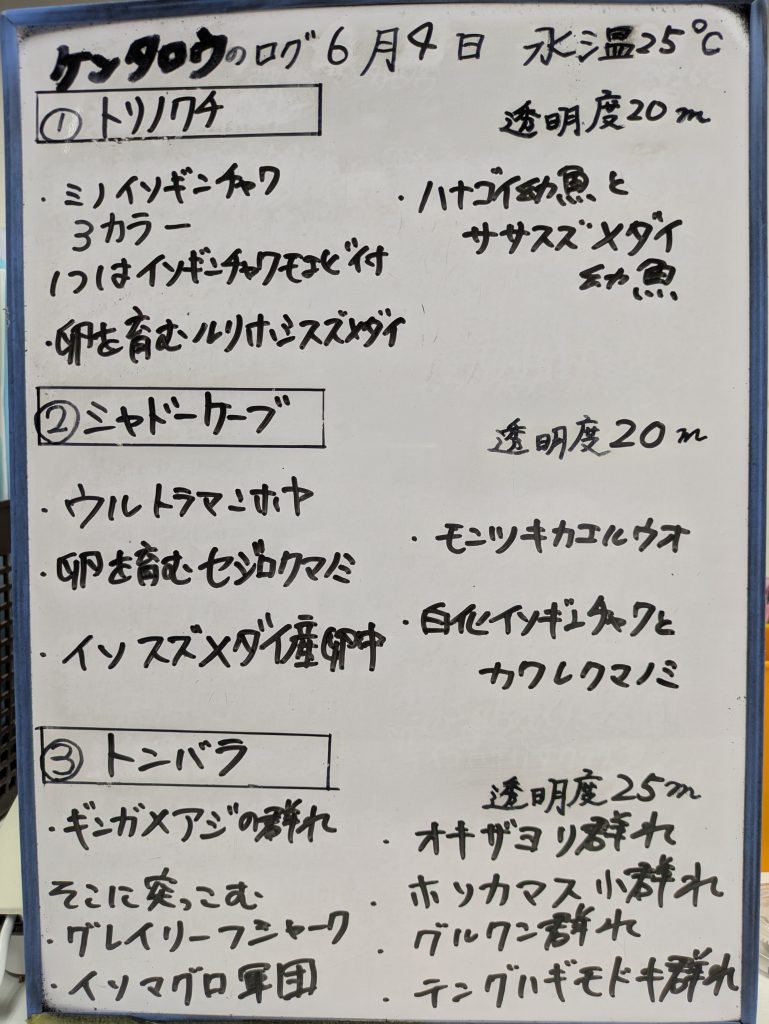 ケンタロウのログ 6月4日 水温25℃
① トリノクチ
透明度20m
・ミノイソギンチャク
3カラー
1つはイソギンチャクモエビ付
・卵を育むルリホシスズメダイ
・ハナゴイ幼魚と
ササスズメダイ
幼魚
② シャドーケーブ
透明度20m
・ウルトラマンホヤ
・卵を育むセジロクマノミ
・イソスズメダイ産卵中
・モンツキカエルウオ
・白化イソギンチャクと
カクレクマノミ
③ トンバラ
透明度25m
・ギンガメアジの群れ
そこに突っこむ
・グレイリーフシャーク
・イソマグロ軍団
・オキザヨリ群れ
・ホソカマス小群れ
・グルクン群れ
・テングハギモドキ群れ